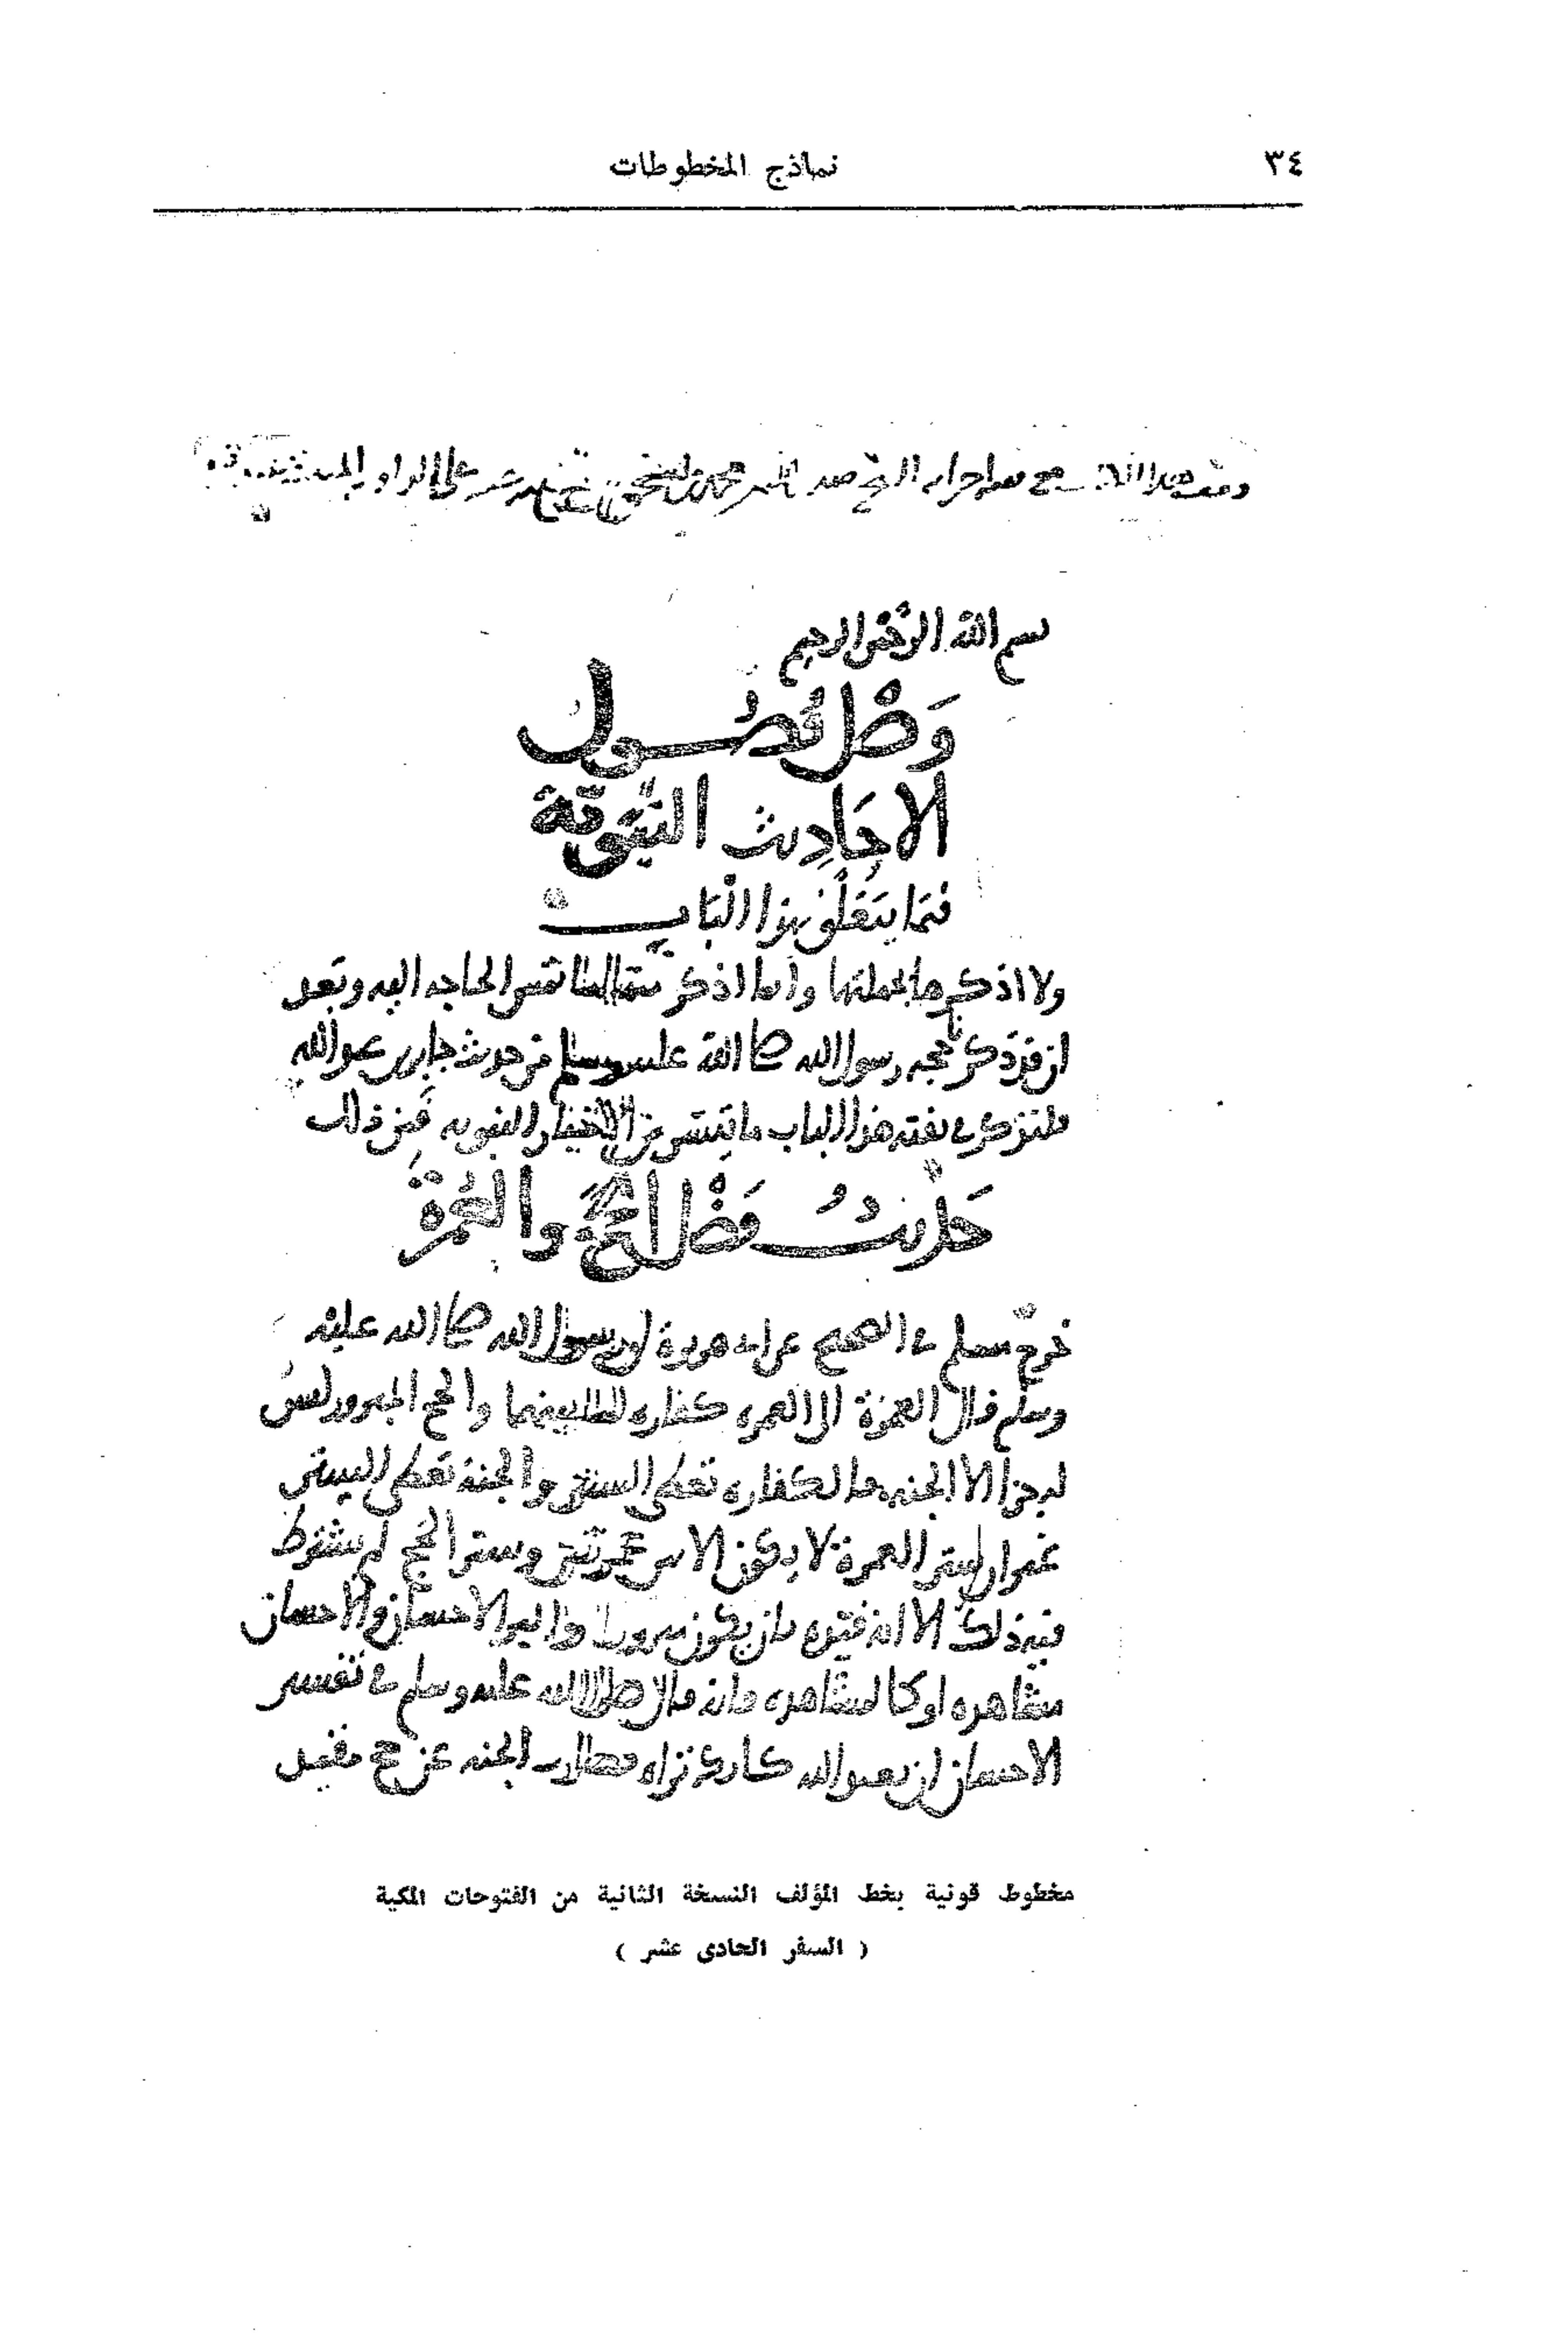 ٣٤
نماذج المخطوطات
وقف هذا الكتاب مع تمام اجزائه الشيخ صدر الدين محمد بن اسحق على الدار
بسم الله الرحمن الرحيم
وَصْل فُصُول
الاحَادِيث النبَّويَّة
فيمَا يتَعَلَّق بهذا الْبَاب
ولا اذكرها بجملتها وانما اذكر منها ما تمس الحاجه اليه وبعد
ان قد ذكرنا حجه رسول الله صلى الله عليه وسلم من حديث جابر بن عبد الله
فلنذكر في بقيه هذا الباب ما تيسر من الاخبار النبويه فمن ذلك
حَدِيثُ فَضْل الحج والعُمرَة
خرج مسلم في الصحيح عن ابى هريرة ان رسول الله صلى الله عليه
وسلم قال العمرة الى العمره كفاره لما بينهما والحج المبرور ليس
له جزا الا الجنه فالكفاره تعطى الستر والجنة تعطى الستر
غير ان ستر العمرة لا يكون الا بين عمرتين وستر الحج لم يشترط
فيه ذلك الا انه قيده بان يكون مبرورا والبر الاحسان والاحسان
مشاهره او كالمشاهده فانه قال صلى الله عليه وسلم في تفسير
الاحسان ان تعبد الله كانك تراه فصارت الجنه عن حج مقيد
مخطوط قونية بخط المؤلف النسخة الثانية من الفتوحات المكية
( السفر الحادى عشر )